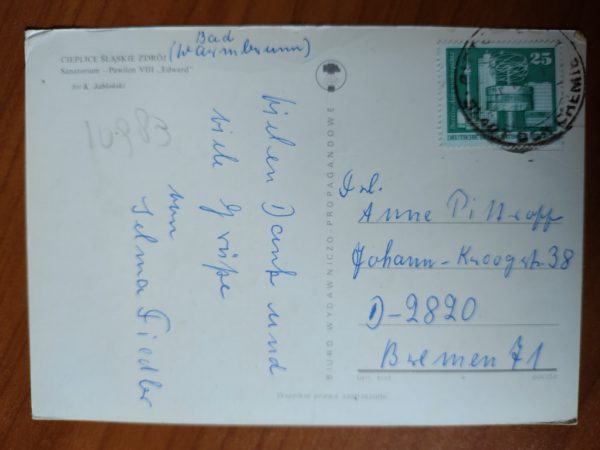 Bad
(Warmbrunn)
CIEPLICE ŚLĄSKIE ZDRÓJ
Sanatorium – Pawilon VIII „Edward"
fot K. Jabłoński
10983
Vielen Dank und
viele Grüße
von
Selma Fiedler
BIURO WYDAWNICZO-PROPAGANDOWE
25
DEUTSCHE
STADT DER CHEMIE
Frl.
Anne Pittroff
Johann-Kroogstr. 38
D-2820
Bremen 71
Wszelkie prawa zastrzeżone